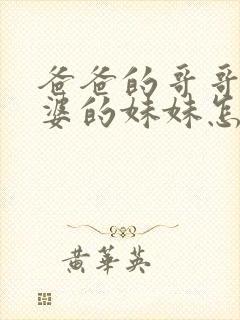 爸爸的哥哥
婆的妹妹怎
黄华英